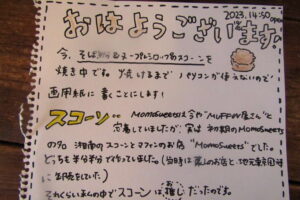 2023. 14:50 open
おはようございます!
今、そば粉のヌープルシロップ スコーンを
焼き中です。焼けるまでパソコンが使えないので
画用紙に書くことにします!
スコーン… MOMOSweetsは今や"MUFFIN屋さん"と
定着していましたが、実は初期のMOMOSweets
の名 湘南のスコーンとマフィンのお店 "MOMOSweets"でした。
どっちも半々で作っていました。(当時は 蒸しのお店と、地元
に卸をしていた)
それくらい私の中でスコーンは推しだったのです。